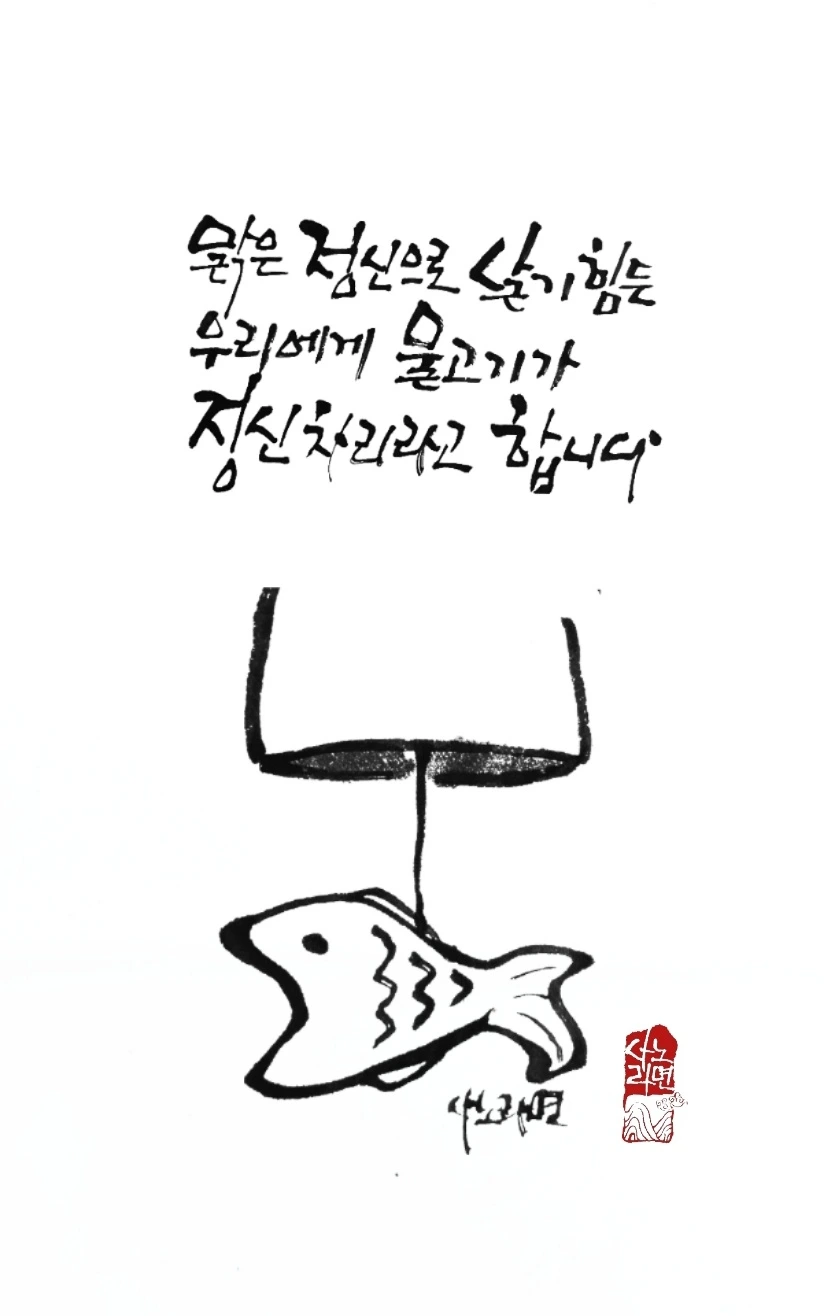 맑은 정신으로 살기 힘든
우리에게 물고기가
정신차리라고 합니다
사노라면
사노
라면